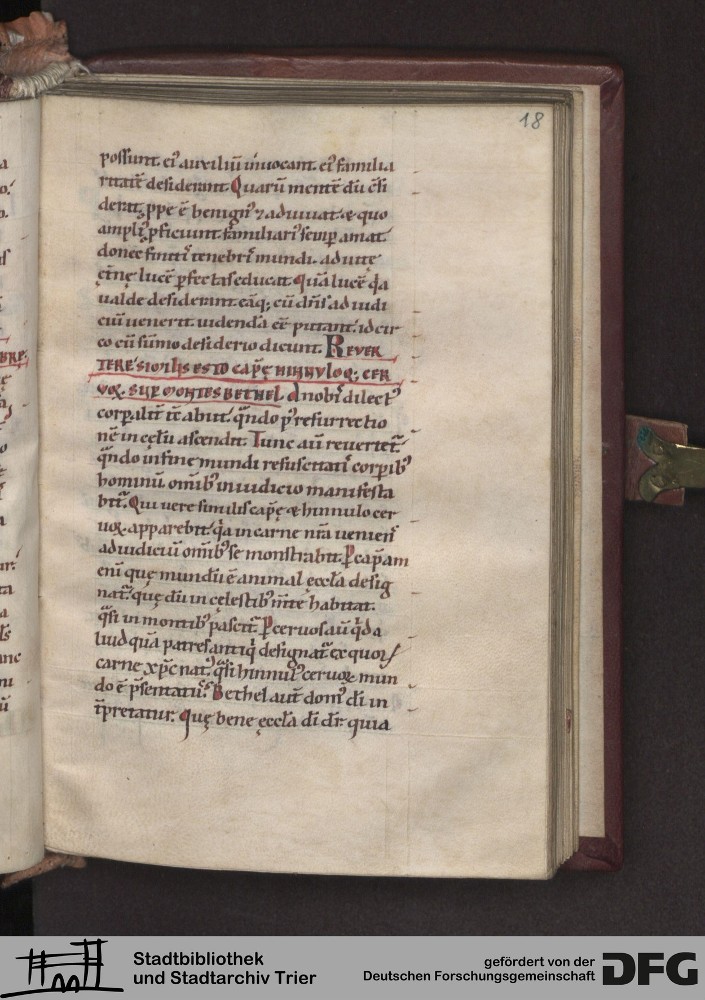 18
possunt. ei' auxiliũ inuocant. ei' familia
ritatẽ desiderant. Quarũ mentẽ dũ c̃si
derat. ꝓpe ẽ benign' ⁊ adiuuat. & quo
ampli' ꝓficiunt. familiari' semꝑ amat
donec finitis tenebris mundi. ad uitę
ęt̃nę lucẽ ꝑfectas educat. Quã lucẽ q̃a
ualde desiderant eãq; cũ dñs ad iudi
ciũ uenerit. uidendã eẽ putant. idcir
co cũ sũmo desiderio dicunt. REVER
TERE. SIMILIS ESTO CAPĘ HINNVLOQ; CER
VOꝜ. SUP MONTES BETHEL. A nobis dilect'
corꝑalit̃ tẽ abiit. q̃ndo p' resurrectio
nẽ in cęlũ ascendit. Tunc aũ reuertet̃.
q̃ndo in fine mundi resuscitatis corꝑib'
hominũ. om̃ib' in iudicio manifesta
bit̃. Qui uere similis capę & hinnulo cer
uoꝝ. apparebit. q̃a in carne nr̃a uenies
ad iudiciũ om̃ib' se monstrabit. ꝑ capẽam
enĩ quę mundũ ẽ animal ęccl̃a desig
nat̃. quę dũ in cęlestib' m̃te habitat.
q̃si in montib' pascit̃. ꝑ ceruos aũ q̃d a
liud quã patres antiq̃ designat̃. ex quoꝝ
carne xp̃c nat'. q̃si hinnul' ceruoꝝ mun
do ẽ p̃sentatus. Bethel aut̃ dom' di in
t̃pretatur. Quę bene ęccl̃a di dr̃. quia
Stadtbibliothek
und Stadtarchiv Trier
gefördert von der
Deutschen Forschungsgemeinschaft
DFG